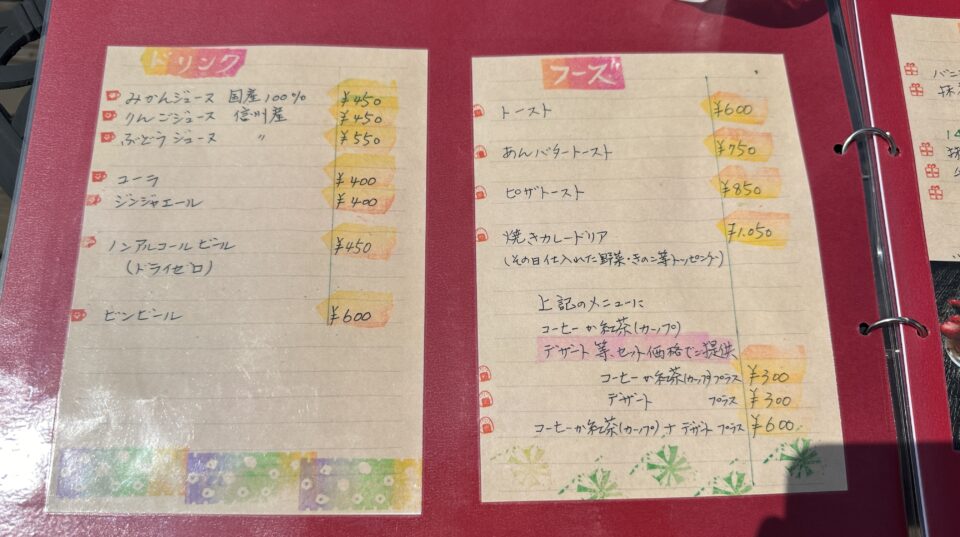 ドリンク
みかんジュース 国産100% ¥450
りんごジュース 信州産 ¥450
ぶどうジュース 〃 ¥550
コーラ ¥400
ジンジャエール ¥400
ノンアルコールビール ¥450
(ドライゼロ)
ビンビール ¥600
フーズ
トースト ¥600
あんバタートースト ¥750
ピザトースト ¥850
焼きカレードリア ¥1.050
(その日仕入れた野菜・きのこ等トッピング)
上記のメニューに
コーヒーか紅茶(カップ)
デザート等、セット価格でご提供
コーヒーか紅茶(カップ)プラス ¥300
デザート プラス ¥300
コーヒーか紅茶(カップ)+デザートプラス ¥600
バニ